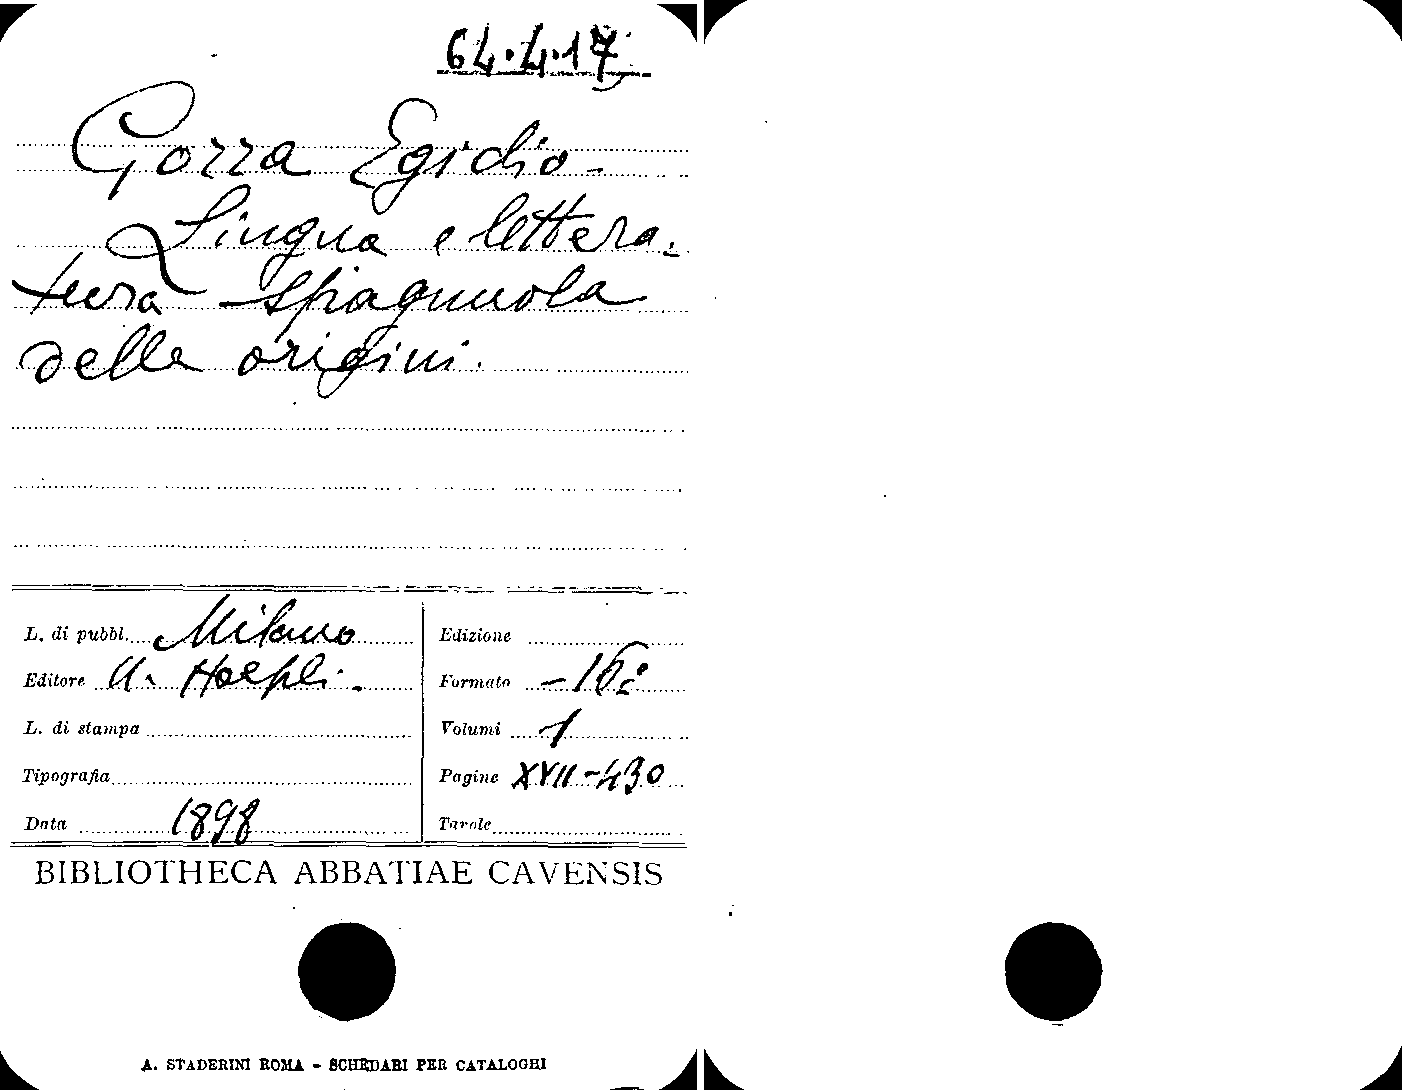 64.4.17
Gorra Egidio -
Lingua e lettera-
tura spagnuola
delle origini.
L. di pubbl. Milano Edizione
Editore U. Hoepli. Formato - 16º
L. di stampa Volumi 1
Tipografia Pagine XVII-430
Data 1898 Tavole
BIBLIOTHECA ABBATIAE CAVENSIS
A. STADERINI ROMA - SCHEDARI PER CATALOGHI